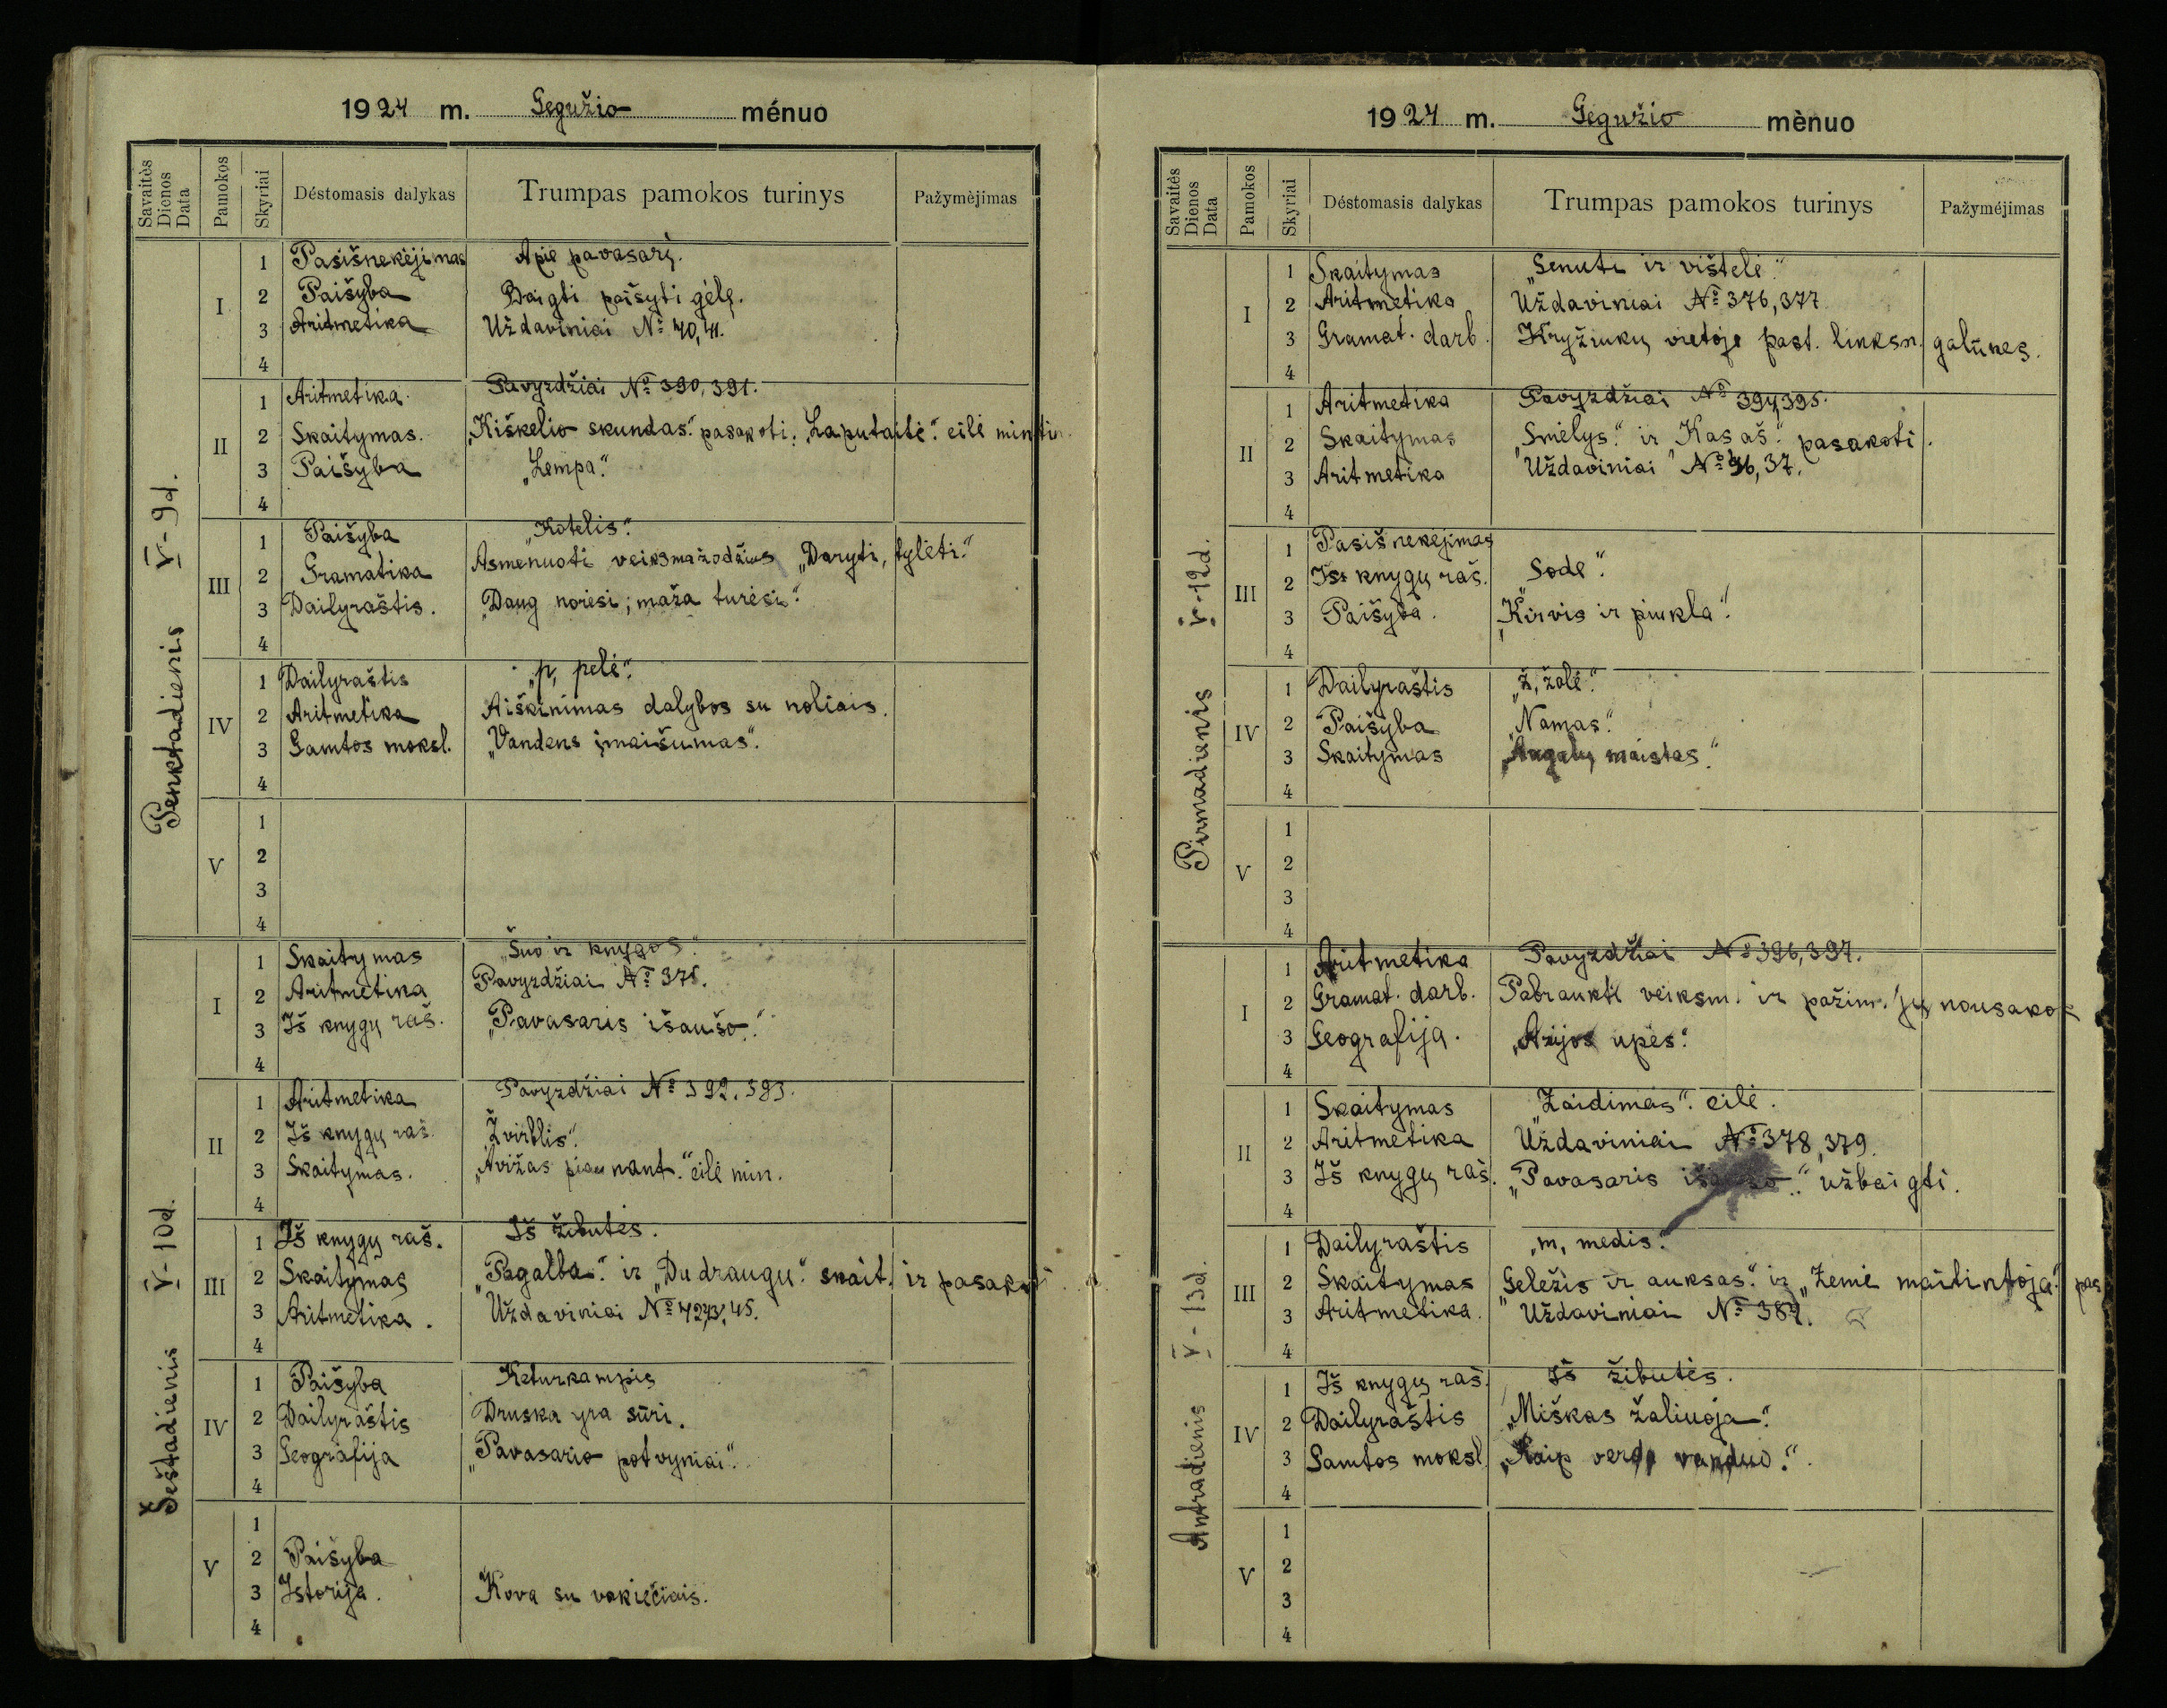 1924 m. Gegužio ménuo
Savaitės Dienos Data
Pamokos
Skyriai
Déstomasis dalykas
Trumpas pamokos turinys
Pažymėjimas
Penktadienis V-9d.
I
1 Pasišnekėjimas Apie pavasarį.
2 Paišyba Baigti paišyti gėlę.
3 Aritmetika Uždaviniai № 40, 41.
4
II
1 Aritmetika. Pavyzdžiai № 390, 391.
2 Skaitymas. „Kiškelio skundas." pasakoti. „Laputaitė." eilė mintin
3 Paišyba „Lempa".
4
III
1 Paišyba „Kotelis".
2 Gramatika Asmenuoti veiksmažodžius „Daryti, tylėti."
3 Dailyraštis. „Daug norėsi; maža turėsi".
4
IV
1 Dailyraštis „p, pelė".
2 Aritmetika Aiškinimas dalybos su noliais.
3 Gamtos moksl. „Vandens įmaišumas".
4
V
1
2
3
4
Šeštadienis V-10d.
I
1 Skaitymas „Šuo ir knygos".
2 Aritmetika Pavyzdžiai № 375.
3 Iš knygų raš. „Pavasaris išaušo."
4
II
1 Aritmetika Pavyzdžiai № 392, 393.
2 Iš knygų raš. „Žvirblis".
3 Skaitymas. „Avižas piaunant." eilė min.
4
III
1 Iš knygų raš. Iš žibutės.
2 Skaitymas „Pagalba". ir „Du draugu". skait. ir pasakoti
3 Aritmetika. Uždaviniai № 42, 43, 45.
4
IV
1 Paišyba Keturkampis
2 Dailyraštis Druska yra sūri.
3 Geografija „Pavasario potvyniai".
4
V
1
2 Paišyba
3 Istorija. Kova su vokiečiais.
4
1924 m. Gegužio mènuo
Savaitės Dienos Data
Pamokos
Skyriai
Déstomasis dalykas
Trumpas pamokos turinys
Pažymėjimas
Pirmadienis V-12d.
I
1 Skaitymas „Senutė ir vištelė."
2 Aritmetika Uždaviniai № 376, 377
3 Gramat. darb. Kryžiukų vietoje past. linksn. galūnes.
4
II
1 Aritmetika Pavyzdžiai № 394, 395.
2 Skaitymas „Smėlys". ir „Kas aš." pasakoti.
3 Aritmetika Uždaviniai № 36, 37.
4
III
1 Pasišnekėjimas
2 Iš knygų raš. „Sode".
3 Paišyba. „Kirvis ir piukla".
4
IV
1 Dailyraštis „ž, žolė".
2 Paišyba „Namas".
3 Skaitymas „Augalų maistas".
4
V
1
2
3
4
Antradienis V-13d.
I
1 Aritmetika Pavyzdžiai № 396, 397.
2 Gramat. darb. Pabraukti veiksm. ir pažim. jų nousakos
3 Geografija. „Azijos upės".
4
II
1 Skaitymas „Žaidimas". eilė.
2 Aritmetika Uždaviniai № 378, 379.
3 Iš knygų raš. „Pavasaris išaušo". užbaigti.
4
III
1 Dailyraštis „m, medis".
2 Skaitymas „Geležis ir auksas". ir „Žemė maitintoja". pas
3 Aritmetika. Uždaviniai № 384.
4
IV
1 Iš knygų raš. Iš žibutės.
2 Dailyraštis „Miškas žaliuoja".
3 Gamtos moksl. „Kaip verda vanduo".
4
V
1
2
3
4